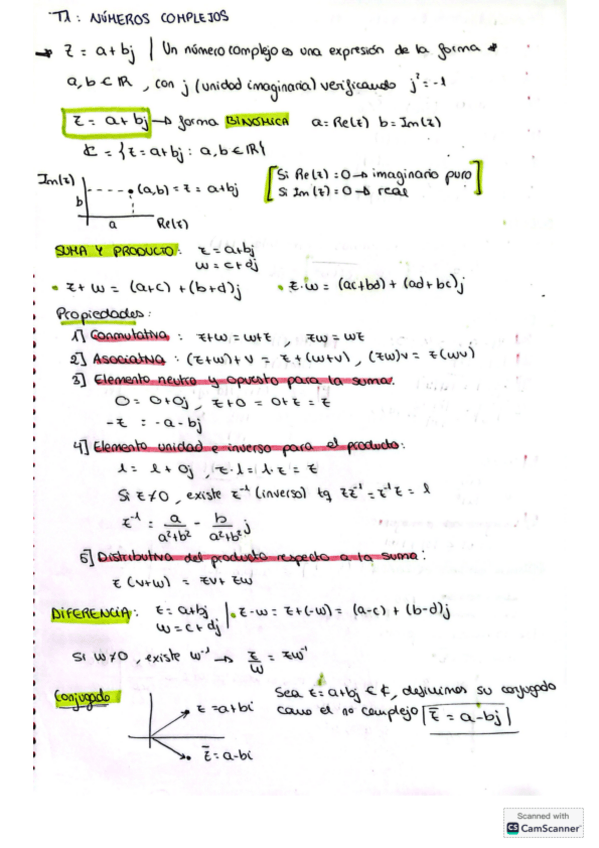 T1: NÚMEROS COMPLEJOS
→ z = a + bj | Un número complejo es una expresión de la forma
a, b ∈ ℝ, con j (unidad imaginaria) verificando j² = -1
z = a + bj → forma BINÓMICA a = Re(z) b = Im(z)
ℂ = {z = a + bj : a, b ∈ ℝ}
Im(z)
b
(a,b) = z = a + bj
a
Re(z)
[Si Re(z) = 0 → imaginario puro
Si Im(z) = 0 → real]
SUMA Y PRODUCTO: z = a + bj
w = c + dj
• z + w = (a+c) + (b+d)j • z·w = (ac+bd) + (ad+bc)j
Propiedades:
1] Conmutativa: z+w = w+z, zw = wz
2] Asociativa: (z+w)+v = z+(w+v), (zw)v = z(wv)
3] Elemento neutro y opuesto para la suma.
0 = 0+0j, z+0 = 0+z = z
-z = -a - bj
4] Elemento unidad e inverso para el producto:
1 = 1 + 0j, z·1 = 1·z = z
Si z ≠ 0, existe z⁻¹ (inverso) tq zz⁻¹ = z⁻¹z = 1
z⁻¹ = a/(a²+b²) - b/(a²+b²) j
5] Distributiva del producto respecto a la suma:
z(v+w) = zv + zw
DIFERENCIA: z = a+bj | • z-w = z+(-w) = (a-c) + (b-d)j
w = c+dj
Si w ≠ 0, existe w⁻¹ → z/w = zw⁻¹
Conjugado
z = a+bi
z̄ = a-bi
Sea z = a+bj ∈ ℂ, definimos su conjugado
como el no complejo |z̄ = a-bj|
Scanned with
CS CamScanner